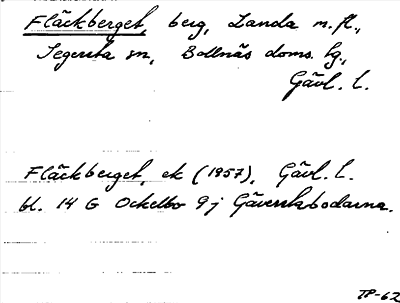 Fläckberget, berg, Landa m.fl.,
Segersta sn, Bollnäs doms. hg.,
Gävl. l.
Fläckberget, ek (1957), Gävl. l.
bl. 14 G Ockelbo 9j Gäversbodarna.
TP-62